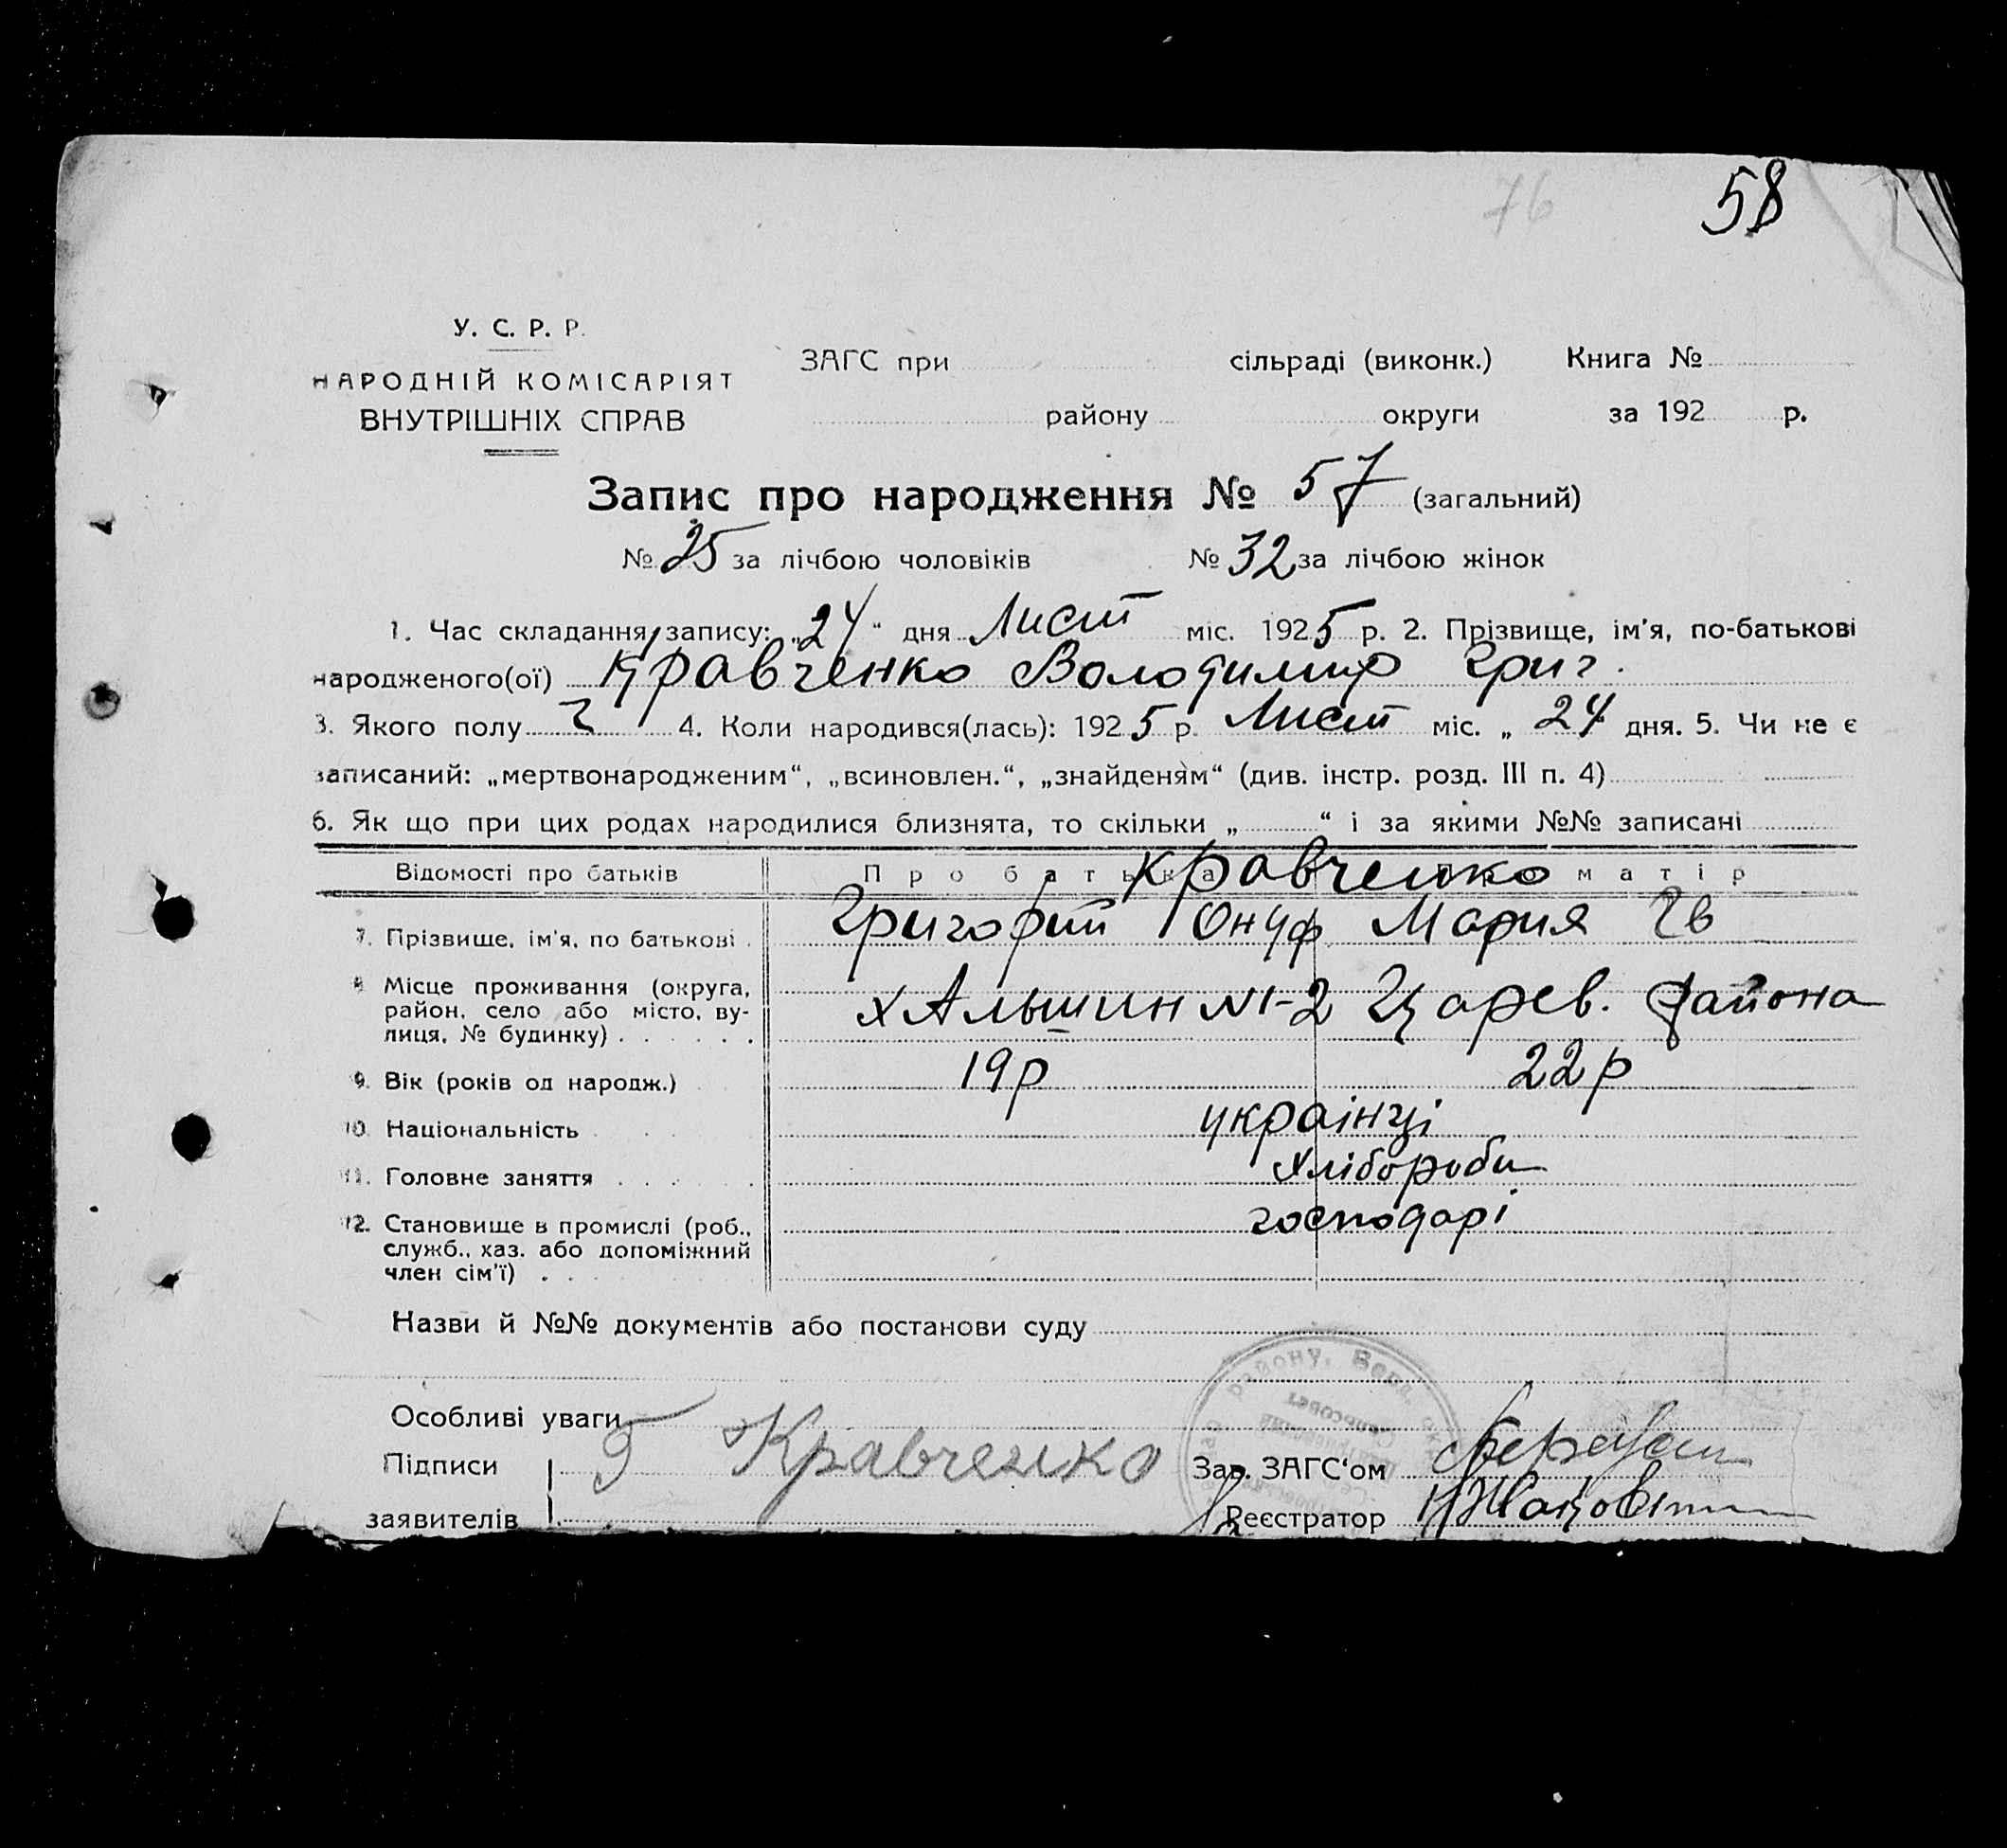 76
58
У. С. Р. Р.
НАРОДНІЙ КОМІСАРІЯТ
ВНУТРІШНІХ СПРАВ
ЗАГС при сільраді (виконк.) Книга №
району округи за 192 р.
Запис про народження № 57 (загальний)
№ 25 за лічбою чоловіків № 32 за лічбою жінок
1. Час складання запису: „24“ дня Лист міс. 1925 р. 2. Прізвище, ім'я, по-батькові
народженого(ої) Кравченко Володимир Григ.
3. Якого полу ч 4. Коли народився(лась): 1925 р. Лист міс. „ 24 дня. 5. Чи не є
записаний: „мертвонародженим“, „всиновлен.“, „знайденям“ (див. інстр. розд. III п. 4)
6. Як що при цих родах народилися близнята, то скільки „ “ і за якими №№ записані
Відомості про батьків Про батька Кравченко матір
7. Прізвище, ім'я, по батькові Григорий Онуф Мария
8. Місце проживання (округа,
район, село або місто, ву-
лиця, № будинку) х Альшин №1-2 Царев. района
9. Вік (років од народж.) 19р 22р
10. Національність українці
11. Головне заняття хлібороби
12. Становище в промислі (роб.,
служб., хаз. або допоміжний
член сім'ї) господарі
Назви й №№ документів або постанови суду
Особливі уваги
Підписи Кравченко Зав. ЗАГС‘ом
заявителів Реєстратор
району,